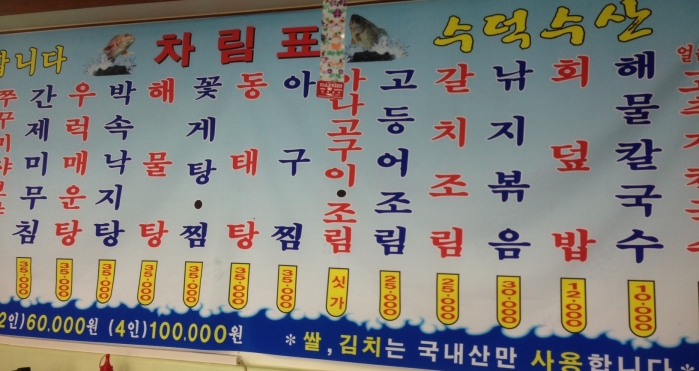 합니다 차림표 수덕수산
간제미무침 35.000
우럭매운탕 35.000
박속낙지탕 35.000
해물탕 35.000
꽃게탕•찜 35.000
동태탕 35.000
아구찜 35.000
아나고구이•조림 싯가
고등어조림 25.000
갈치조림 25.000
낚지볶음 30.000
회덮밥 12.000
해물칼국수 10.000
2인)60.000원 (4인)100.000원
* 쌀, 김치는 국내산만 사용합니다